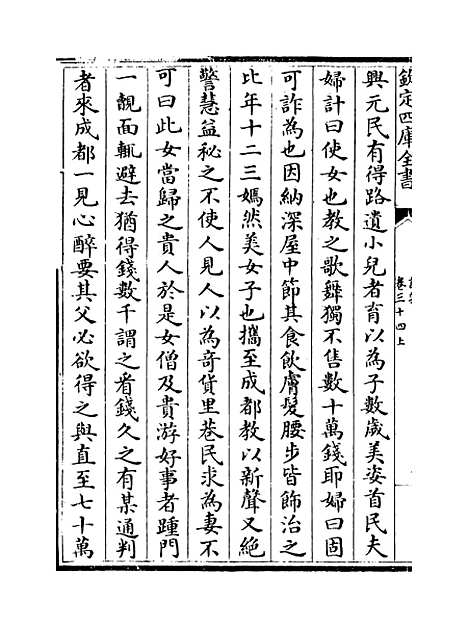 欽定四庫全書
卷三十四上
興元民有得路遺小兒者育以為子數歲美姿首民夫
婦計曰使女也教之歌舞獨不售數十萬錢耶婦曰固
可詐為也因納深屋中節其食飲膚髮腰步皆飾治之
比年十二三嫣然美女子也攜至成都教以新聲又絶
警慧益秘之不使人見人以為奇貨里巷民求為妻不
可曰此女當歸之貴人於是女僧及貴游好事者踵門
一覩面輒避去猶得錢數千謂之看錢久之有某通判
者來成都一見心醉要其父必欲得之與直至七十萬